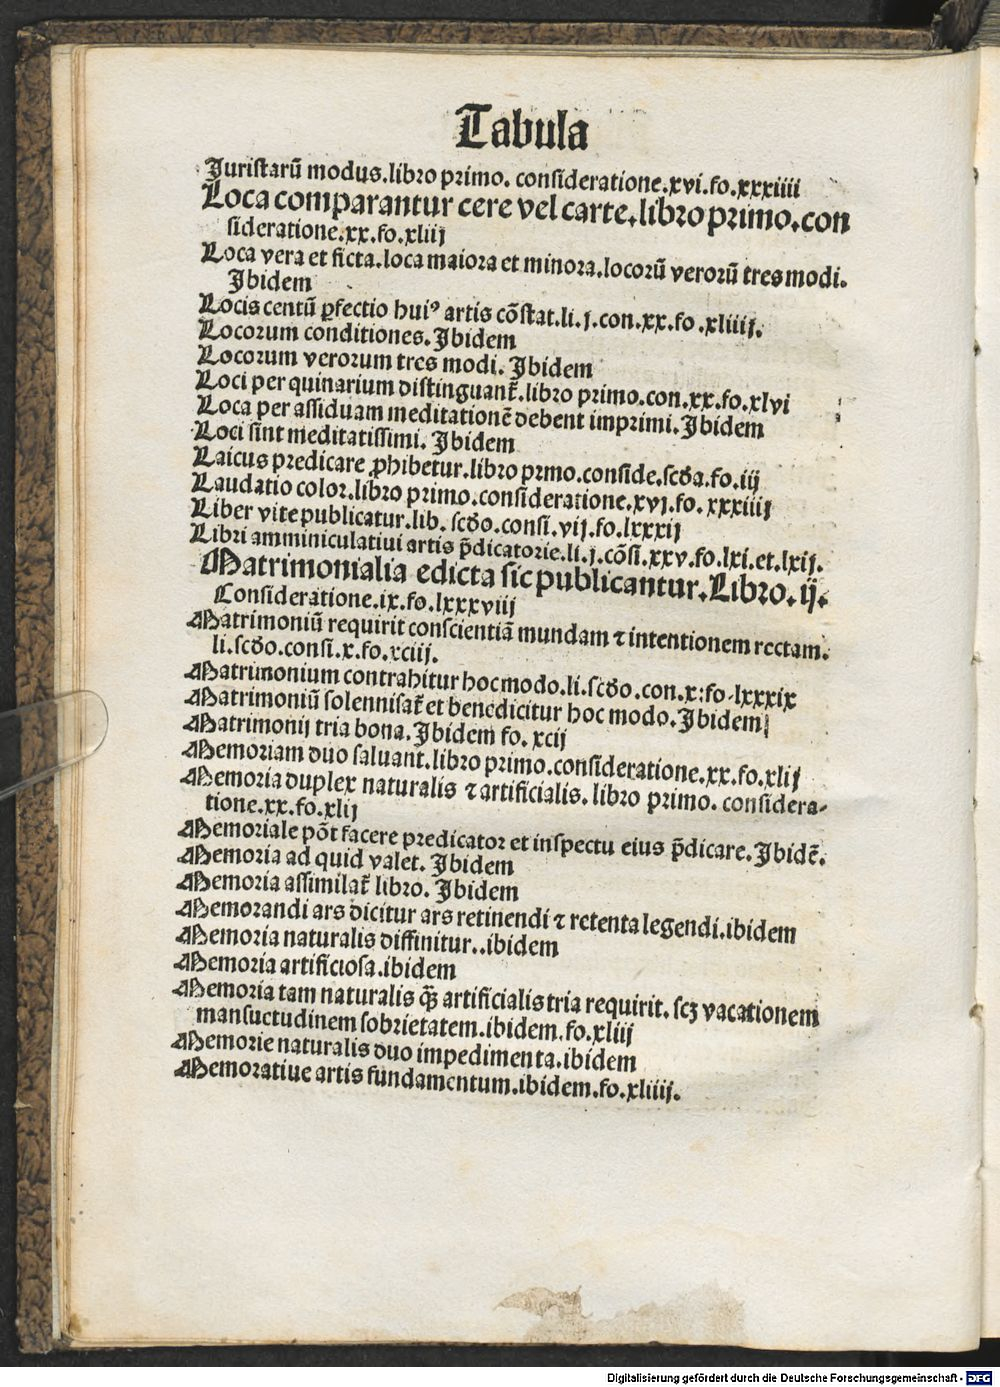 Tabula
Juristarū modus.libro primo. consideratione.xvi.fo.xxxiiii
Loca comparantur cere vel carte.libro primo.con
sideratione.xx.fo.xliij
Loca vera et ficta.loca maiora et minora.locorū verorū tres modi.
Ibidem
Locis centū ꝑfectio huiꝰ artis cōstat.li.j.con.xx.fo.xliiij.
Locorum conditiones. Ibidem
Locorum verorum tres modi. Ibidem
Loci per quinarium distinguant̄.libro primo.con.xx.fo.xlvi
Loca per assiduam meditationē debent imprimi. Ibidem
Loci sint meditatissimi. Ibidem
Laicus predicare ꝓhibetur.libro prmo.conside.scd̄a.fo.iij
Laudatio color.libro primo.consideratione.xvj.fo.xxxiiij
Liber vite publicatur.lib. scd̄o.consi.vij.fo.lxxxij
Libri amminiculatiui artis p̄dicatorie.li.j.cōsi.xxv.fo.lxi.et.lxij.
Matrimonialia edicta sic publicantur.Libro.ij.
Consideratione.ix.fo.lxxxviij
Matrimoniū requirit conscientiā mundam ⁊ intentionem rectam.
li.scd̄o.consi.x.fo.xciij.
Matrimonium contrahitur hoc modo.li.scd̄o.con.x:fo.lxxxix
Matrimoniū solennisat̄ et benedicitur hoc modo.Ibidem
Matrimonij tria bona. Ibidem fo. xcij
Memoriam duo saluant.libro primo.consideratione.xx.fo.xlij
Memoria duplex naturalis ⁊ artificialis. libro primo. considera-
tione.xx.fo.xlij
Memoriale pōt facere predicator et inspectu eius p̄dicare.Ibidē.
Memoria ad quid valet. Ibidem
Memoria assimilat̄ libro. Ibidem
Memorandi ars dicitur ars retinendi ⁊ retenta legendi.ibidem
Memoria naturalis diffinitur..ibidem
Memoria artificiosa.ibidem
Memoria tam naturalis q̄ꝫ artificialis tria requirit. scꝫ vacationem
mansuctudinem sobrietatem.ibidem.fo.xliij
Memorie naturalis duo impedimenta.ibidem
Memoratiue artis fundamentum.ibidem.fo.xliiij.
Digitalisierung gefördert durch die Deutsche Forschungsgemeinschaft - DFG